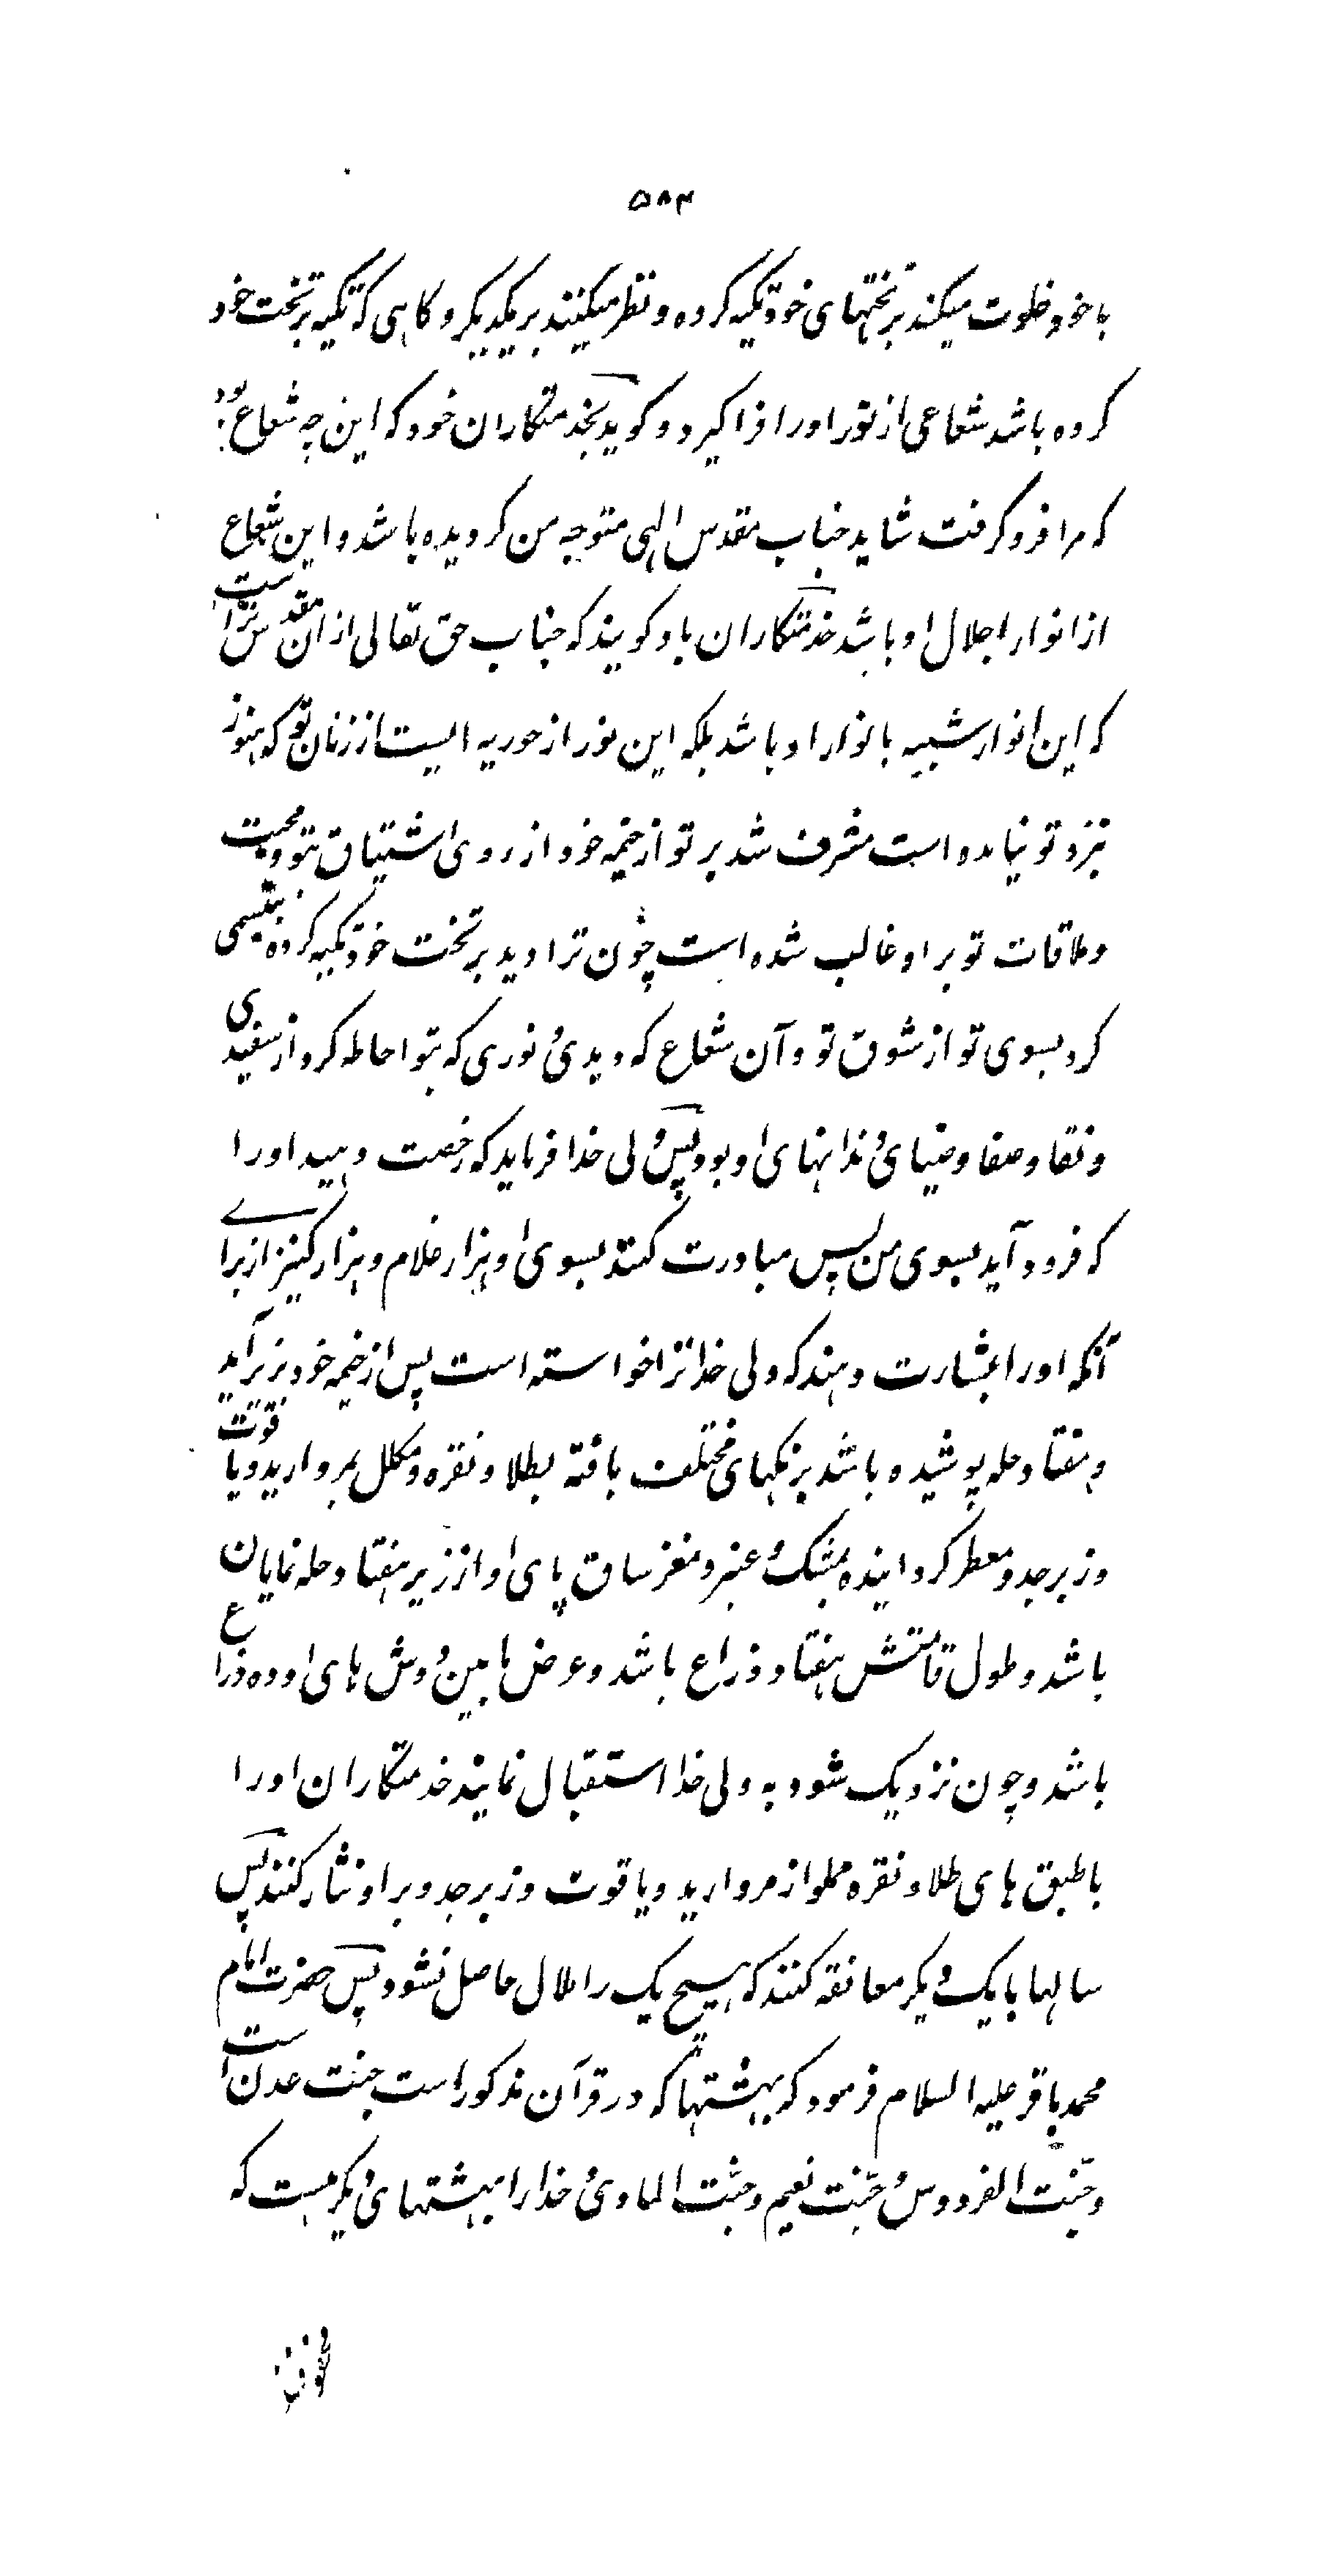 ۵۸۴
با خود خلوت میکند بر تختهای خود تکیه کرده و نظر میکنند بر یکدیگر و کاهی که تکیه بر تخت خود
کرده باشد شعاعی از نور او را فراکیرد و کوید بخدمتکاران خود که این چه شعاع بود
که مرا فرو کرفت شاید جناب مقدس الهی متوجه من کردیده باشد و این شعاع
از انوار اجلال او باشد خدمتکاران باو کویند که جناب حق تعالی از ان مقدس تر است
که این انوار شبیه بانوار او باشد بلکه این نور از حوریه ایست از زنان تو که هنوز
نزد تو نیامده است مشرف شد بر تو از خیمه خود از روی اشتیاق بتو و محبت
و ملاقات تو بر او غالب شده است چون ترا دید بر تخت خود تکیه کرده تبسمی
کرد بسوی تو از شوق تو و آن شعاع که دیدی نوری که بتو احاطه کرد از سفیدی
و نقا و صفا و ضیای دندانهای او بود پس ولی خدا فرماید که رخصت دهید او را
که فرود آید بسوی من پس مبادرت کنند بسوی او هزار غلام و هزار کنیز از برای
آنکه او را بشارت دهند که ولی خدا ترا خواسته است پس از خیمه خود بزیر آید
و هفتاد حله پوشیده باشد برنکهای مختلف بافته بطلا و نقره و مکلل بمروارید و یاقوت
و زبرجد و معطر کردانیده بمشک و عنبر و مغز ساق پای او از زیر هفتاد حله نمایان
باشد و طول قامتش هفتاد ذراع باشد و عرض مابین دوش های او ده ذراع
باشد و چون نزدیک شود به ولی خدا استقبال نمایند خدمتکاران او را
با طبق های طلا و نقره مملو از مروارید و یاقوت و زبرجد و بر او نثار کنند پس
سالها با یک دیکر معانقه کنند که هیچ یک را ملال حاصل نشود پس حضرت امام
محمد باقر علیه السلام فرمود که بهشتها که در قرآن مذکور است جنت عدن است
و جنت الفردوس و جنت نعیم و جنت الماوی و خدا را بهشتهای دیکر هست که